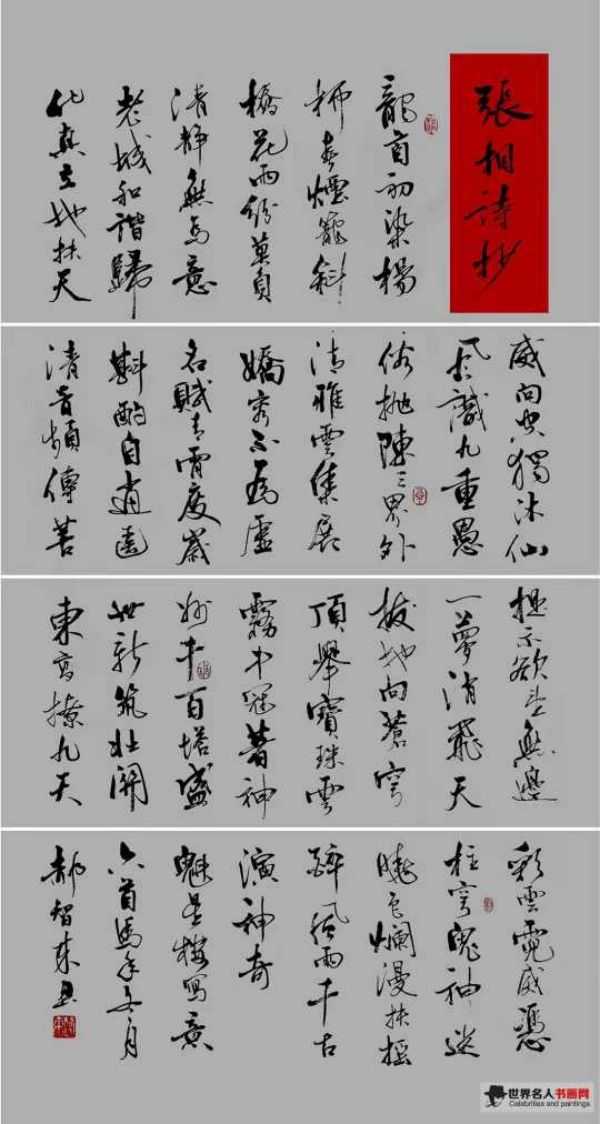 張相詩抄
龍首初染楊
柳春煙籠斜
橋花雨紛莫負
清靜無為意
老城和諧歸
化真立地扶天
威向空獨沐仙
風藏九重恩
俗拋陳三界外
清雅雲集展
嬌容不為虛
名賦青霄度歲
斟酌自逍遙
清音頻傳菩
提示欲無邊
一夢消飛天
拔地向蒼穹
頂舉寶珠雲
霧中冠蓄神
州千百塔盛
世新筑壯開
東高撩九天
彩雲霓威憑
柱穹鬼神迷
曉色爛漫扶搖
醉風雨千古
演神奇
魁星樓寫意
六首馬年冬月
郝智來書
世界名人书画网
Celebrities and paintings